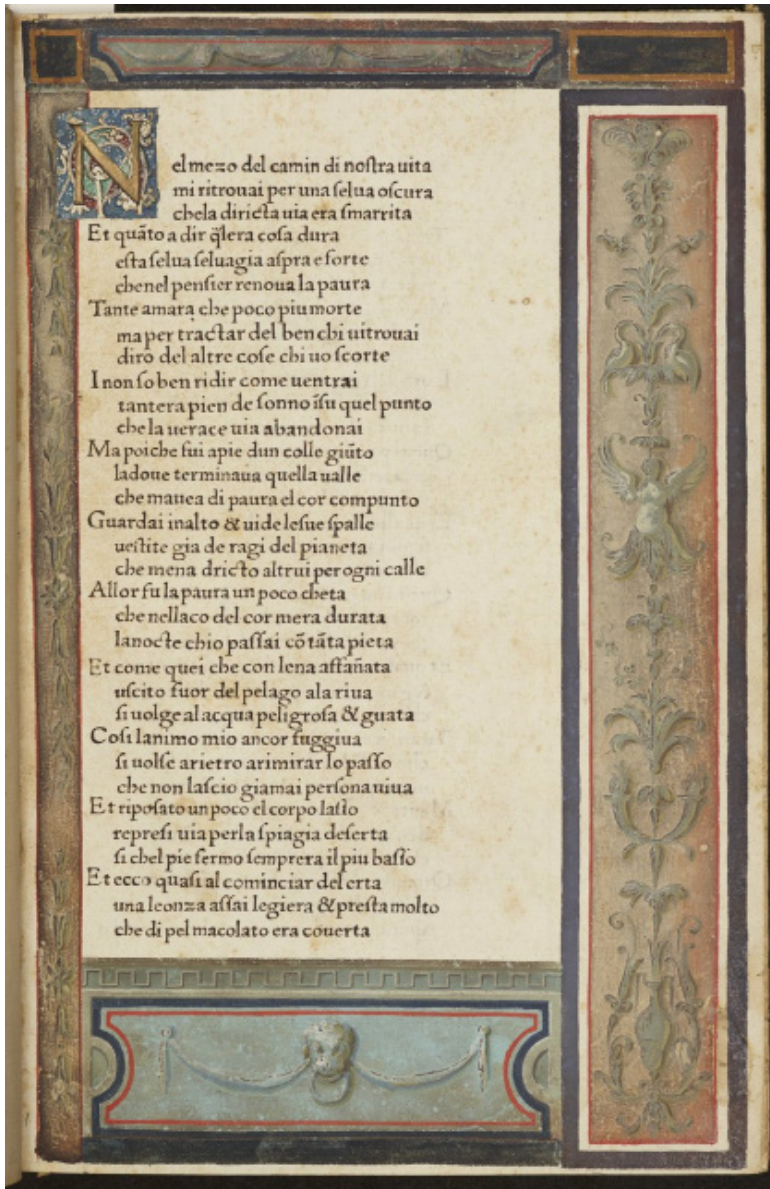 Nelmezo del camin di noſtra uita
mi ritrouai per una ſelua oſcura
chela diricta uia era ſmarrita
Et quãto a dir q̃lera coſa dura
eſta ſelua ſeluagia aſpra e forte
chenel penſier renoua la paura
Tante amara che poco piu morte
ma per tractar del ben chi uitrouai
diro del altre coſe chi uo ſcorte
I non ſo ben ridir come uentrai
tantera pien de ſonno ĩſu quel punto
che la uerace uia abandonai
Ma poiche fui apie dun colle giũto
ladoue terminaua quella ualle
che mauea di paura el cor compunto
Guardai inalto & uide leſue ſpalle
ueſtite gia de ragi del pianeta
che mena dricto altrui perogni calle
Allor fu la paura un poco cheta
che nellaco del cor mera durata
lanocte chio paſſai cõ tãta pieta
Et come quei che con lena affãnata
uſcito fuor del pelago ala riua
ſi uolge al acqua peligroſa & guata
Coſi lanimo mio ancor fuggiua
ſi uolſe arietro arimirar lo paſſo
che non laſcio giamai perſona uiua
Et ripoſato un poco el corpo laſſo
repreſi uia perla ſpiagia deſerta
ſi chel pie fermo ſemprera il piu baſſo
Et ecco quaſi al cominciar del erta
una leonza aſſai legiera & preſta molto
che di pel macolato era couerta